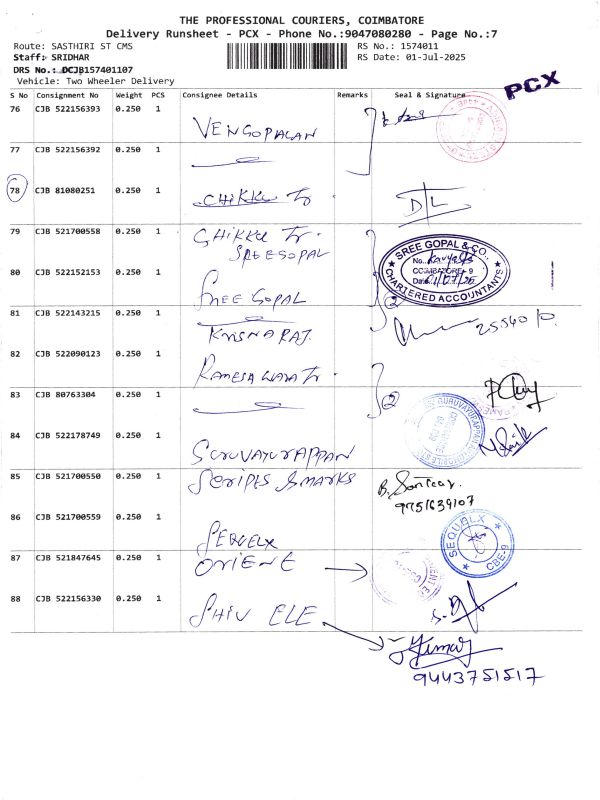 THE PROFESSIONAL COURIERS, COIMBATORE
Delivery Runsheet - PCX - Phone No.:9047080280 - Page No.:7
Route: SASTHIRI ST CMS
RS No.: 1574011
Staff: SRIDHAR
RS Date: 01-Jul-2025
DRS No.: DCJB157401107
PCX
Vehicle: Two Wheeler Delivery
S No Consignment No Weight PCS Consignee Details Remarks Seal & Signature
76 CJB 522156393 0.250 1 VENGOPALAN
77 CJB 522156392 0.250 1
78 CJB 81080251 0.250 1 CHIKKU Tr D/L
79 CJB 521700558 0.250 1 CHIKKU Tr.
SREEGOPAL
SREE GOPAL & CO.
No.
COIMBATORE - 9
Date 01/07/25
CHARTERED ACCOUNTANTS
80 CJB 522152153 0.250 1 SREE GOPAL
2
81 CJB 522143215 0.250 1
KRISNA RAJ.
82 CJB 522090123 0.250 1
83 CJB 80763304 0.250 1
2
84 CJB 522178749 0.250 1 GURUVAYURAPPAN
85 CJB 521700550 0.250 1 SCRIPTS & MARKS
9751639107
86 CJB 521700559 0.250 1
SEQUELX
CBE-9
87 CJB 521847645 0.250 1 ORIENT
88 CJB 522156330 0.250 1 SHIV ELE
9443751517